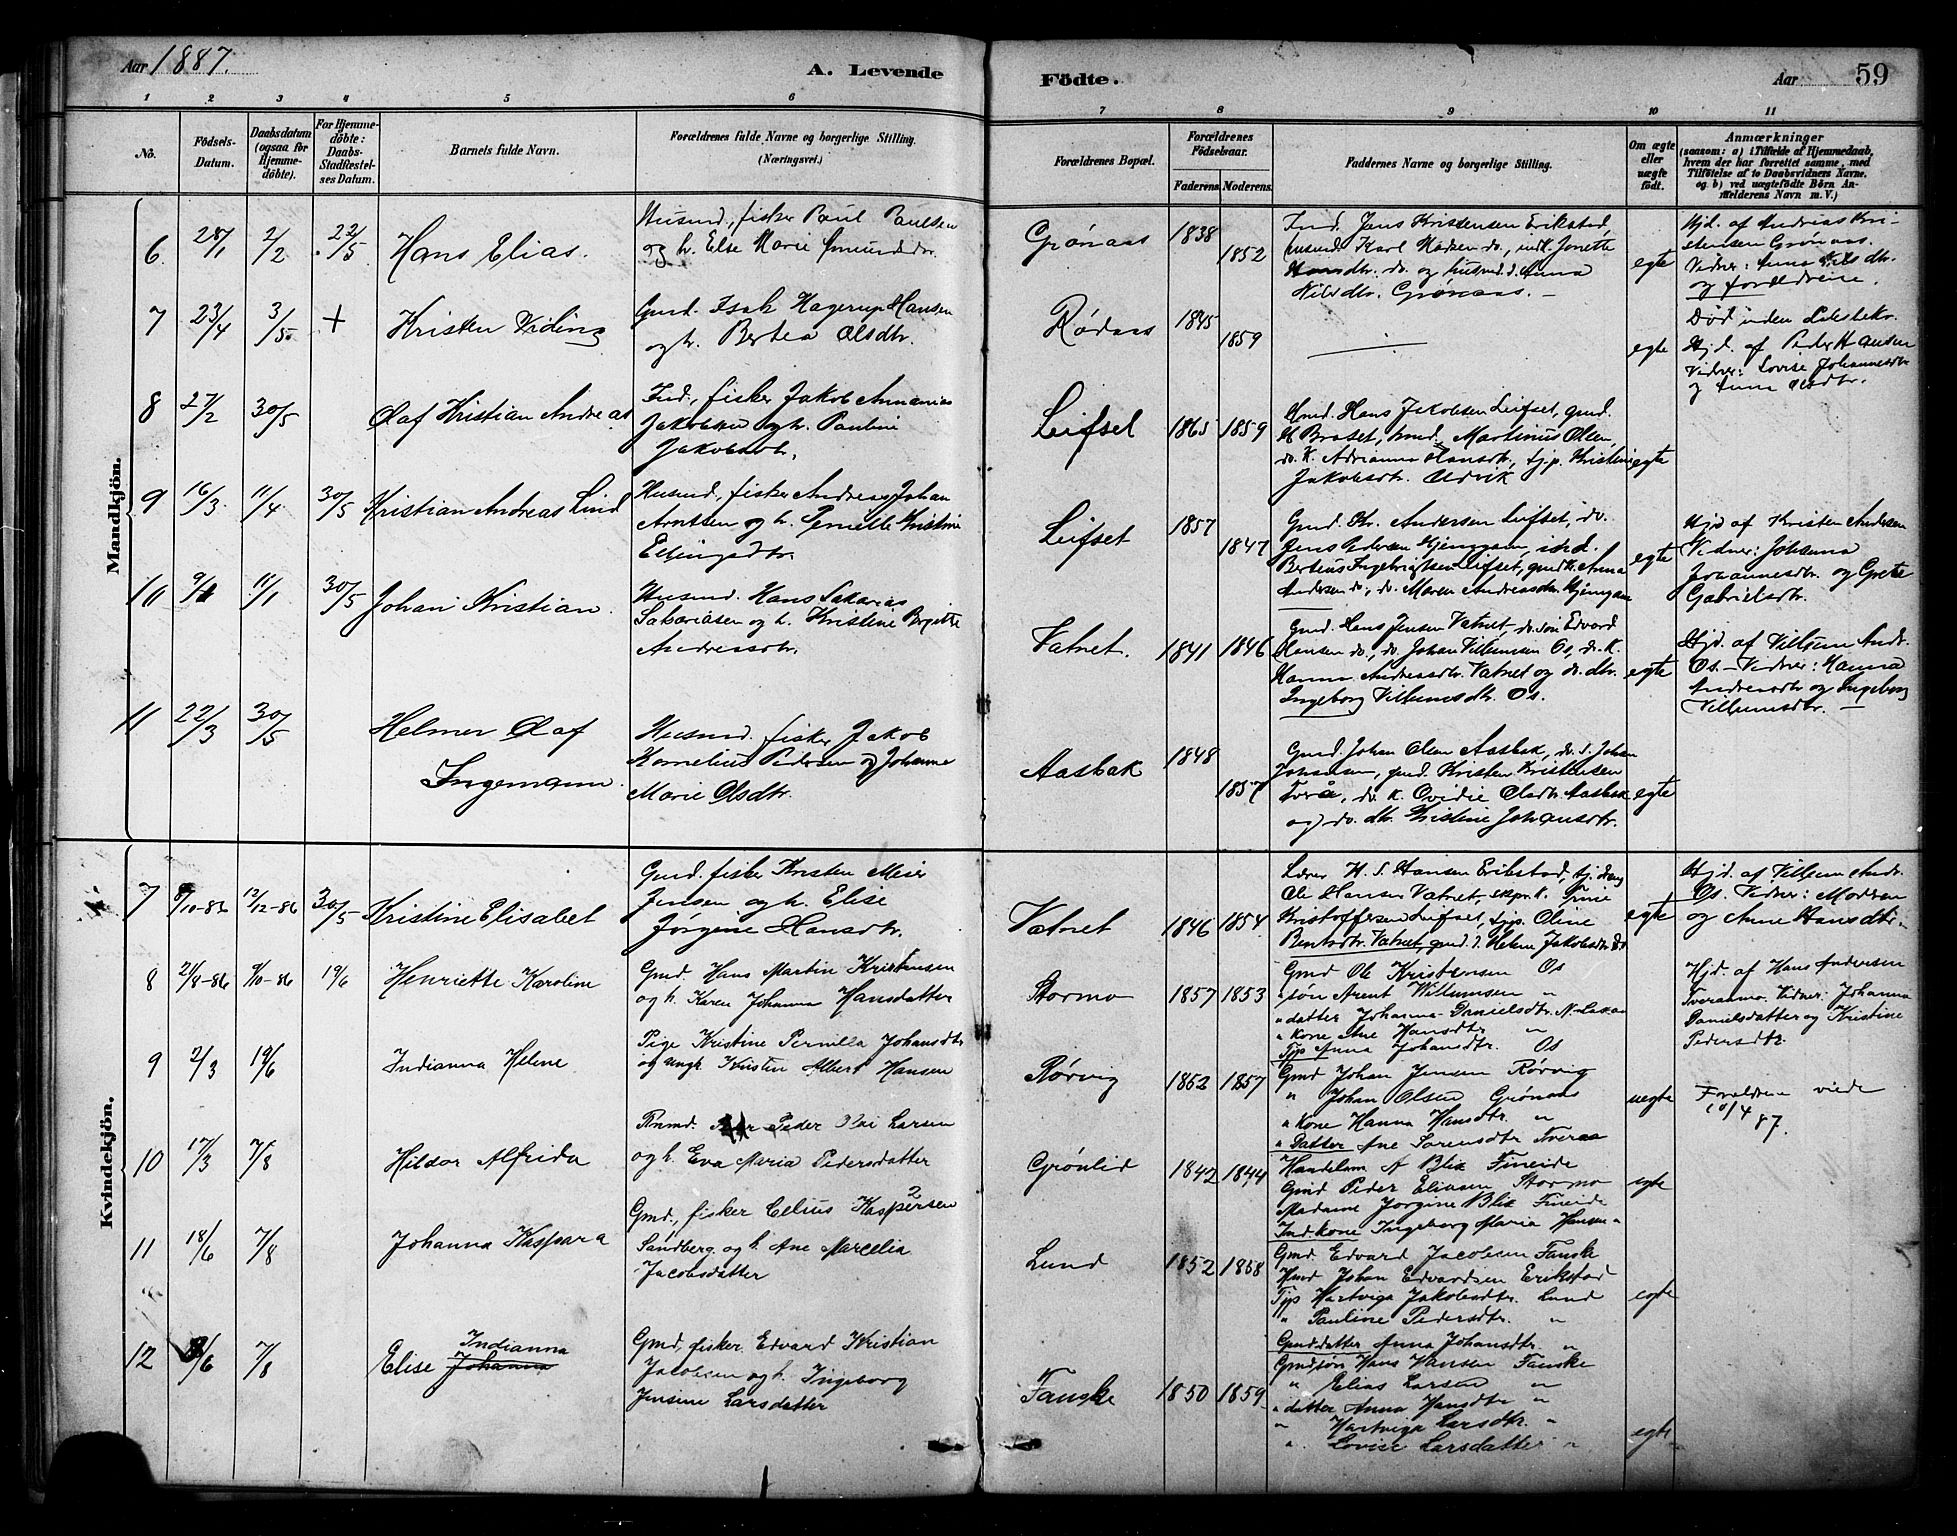 Aar 1887.
A. Levende Födte.
Aar 59
1 2 3 4 5 6 7 8 9 10 11
No.
Födsels-Datum.
Daabsdatum (ogsaa for Hjemmedöbte).
For Hjemmedöbte: Daabs-Stadfestelses Datum.
Barnets fulde Navn.
Forældrenes fulde Navne og borgerlige Stilling. (Næringsvei.)
Forældrenes Bopæl.
Forældrenes Födselsaar.
Faderens. Moderens.
Faddernes Navne og borgerlige Stilling.
Om ægte eller uægte födt.
Anmærkninger
(saasom: a) i Tilfælde af Hjemmedaab, hvem der har forrettet samme, med Tilföielse af to Daabsvidners Navne, og b) ved uægtefödte Börn Anmelderens Navn m. V.)
Mandkjön.
6 28/1 2/2 22/5 Hans Elias.
Husmd., fisker Paul Paulsen
og h. Else Marie
Grönaas 1838 1852
Ind. Jens Kristensen Erikstad,
husmd. Karl Madsen do., indk. Jonette
do. og husmd. d. Anna
Nilsdtr. Grönaas. —
egte
Hjd. af Andreas Kri-
stensen Grönaas.
Vidner: Anna Nilsdtr.
og forældrene.
7 23/4 3/5 + Kristen Viding
Gmd. Isak Hagerup Hansen
og h. Bertea Olsdtr.
Rödaas 1845 1859
egte
Död uden Stadfæ
Hjd. af Peder Hansen
Vidner: Lovise Johannesdtr
og Anna Olsdtr.
8 27/2 30/5 Olaf Kristian Andreas
Ind., fisker Jakob Annanias
Jakobsen og h. Pauline
Jakobsdtr.
Leifset 1865 1859
Gmd. Hans Jakobsen Leifset, gmd.
Martinus Olsen,
do. K. Adrianna Hansdtr., tj.p. Kristine
Jakobsdtr. Alvik
egte
9 16/3 11/4 30/5 Kristian Andreas Lind
Husmd., fisker Andreas Johan
Arntsen og h. Pernelle Kristine
Ellingsdtr.
Leifset 1857 1847
Gmd. Kr. Andersen Leifset, do.
Jens Pedersen Hjemgam, ind.
Bertens Ingebrigtsen Leifset, gmd.k. Anna
Andersen do., do. Maren Andreasdtr Hjemgam
egte
Hjd af Kristen Andersen
Vidner: Johanna
Johannesdtr. og Grete
Gabrielsdtr.
10 9/1 11/1 30/5 Johan Kristian.
Husmd. Hans Sakarias
Sakariasen og h. Kristine Birgitte
Andreasdtr.
Vatnet. 1841 1846
Gmd. Hans Jensen Vatnet, do. sön Edvard
Hansen do., do. Johan Villumsen Os, do. K.
Hanna Andreasdtr Vatnet og do. dtr.
Ingeborg Villumsdtr. Os.
egte
Hjd. af Villum Andr.
Os. — Vidner: Hanna
Andreasdtr og Ingeborg
Villumsdtr. —
11 22/3 30/5 Helmer Olaf
Ingemann
Husmd. fisker Jakob
Kornelius Pedersen og Johanne
Marie Olsdtr.
Aasbak 1848 1857
Gmd. Johan Olsen Aasbak, do. s. Johan
Johansen, gmd. Kristen Kristensen
Tverå, do. K. Ovidie Olsdtr. Aasbak
og do. dtr. Kristine Johansdtr.
egte
Kvindekjön.
7 8/10-86 12/12-86 30/5 Kristine Elisabet
Gmd. fisker Kristen Meier
Jensen og h. Elise
Jörgine Hansdtr.
Vatnet 1846 1854
Lærer H. S. Hansen Erikstad, tj. dreng
Ole Hansen Vatnet, K. Trine
Kristoffersen Leifset, tjp. Oline
Berntsdtr. Vatnet, gmd. d. Helene Jakobsdtr
egte
Hjd. af Villum Andr.
Os. Vidner: Morten
og Anne Hansdtr.
8 21/8-86 9/10-86 19/6 Henriette Karoline
Gmd Hans Martin Kristensen
og h. Karen Johanna Hansdatter
Stormo 1857 1853
Gmd Ole Kristensen Os
" sön Arent Willumsen "
" datter Johanna Danielsdtr.
" Kone Ane Hansdtr "
Tjp Anna Johansdtr. Os
Hjd. af Hans Andersen
Tveraamo. Vidner: Johanna
Danielsdatter og Kristine
Pedersdtr.
9 2/3 19/6 Indianna Helene
Pige Kristine Pernilla Johansdtr
og ungk. Kristen Albert Hansen
Rörvig 1862 1857
Gmd Johan Jensen Rörvig
" Johan Olsen Grönaas
" Kone Hanna Hansdtr. "
" Datter Ane Sörensdtr Tveraa
uegte
Foreldrene viede
10/4 87.
10 17/3 7/8 Hildor Alfrida
Peder Olai Larsen
og h. Eva Maria Pedersdatter
Grönlid 1842 1844
Handelsm A Blix Fineide
Gmd Peder Eliasen Stormo
Madame Jörgine Blix Fineide
Ind.kone Ingeborg Maria Hansen "
egte
11 18/6 7/8 Johanna Kaspara
Gmd., fisker Celius Kaspersen
Sandberg og h. Ane Marcelia
Jacobsdatter
Lund 1852 1858
Gmd Edvard Jacobsen Fauske
Hmd Johan Edvardsen Erikstad
Tjp Hartviga Jakobsdtr. Lund
" Pauline Pedersdtr. "
Gmdsdatter Anna Johansdtr. "
egte
12 8/6 7/8 Elise Indianna Johanna
Gmd, fisker Edvard Kristian
Jacobsen og h. Ingeborg
Jensine Larsdatter
Fauske 1850 1859
Gmdsön Hans Hansen Fauske
" Elias Larsen "
" datter Anna Hansdtr "
" Hartviga Larsdtr. "
" Lovise Larsdatter "
egte